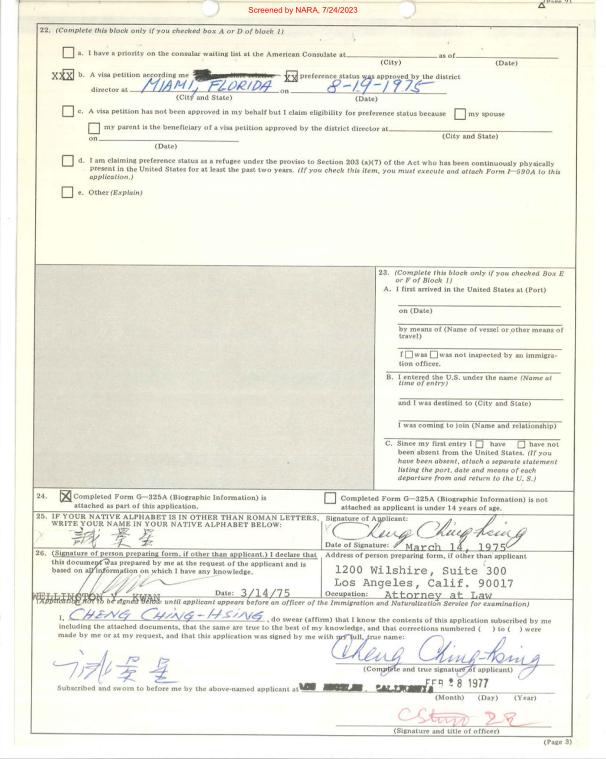 Screened by NARA, 7/24/2023
22. (Complete this block only if you checked box A or D of block 1)
a. I have a priority on the consular waiting list at the American Consulate at as of
(City) (Date)
XXX b. A visa petition according me XX preference status was approved by the district
director at MIAMI, FLORIDA on 8-19-1975
(City and State) (Date)
c. A visa petition has not been approved in my behalf but I claim eligibility for preference status because my spouse
my parent is the beneficiary of a visa petition approved by the district director at
(City and State)
on
(Date)
d. I am claiming preference status as a refugee under the proviso to Section 203 (a)(7) of the Act who has been continuously physically
present in the United States for at least the past two years. (If you check this item, you must execute and attach Form I-590A to this
application.)
e. Other (Explain)
23. (Complete this block only if you checked Box E
or F of Block 1)
A. I first arrived in the United States at (Port)
on (Date)
by means of (Name of vessel or other means of
travel)
I was was not inspected by an immigra-
tion officer.
B. I entered the U.S. under the name (Name at
time of entry)
and I was destined to (City and State)
I was coming to join (Name and relationship)
C. Since my first entry I have have not
been absent from the United States. (If you
have been absent, attach a separate statement
listing the port, date and means of each
departure from and return to the U. S.)
24. X Completed Form G-325A (Biographic Information) is
attached as part of this application.
Completed Form G-325A (Biographic Information) is not
attached as applicant is under 14 years of age.
25. IF YOUR NATIVE ALPHABET IS IN OTHER THAN ROMAN LETTERS,
WRITE YOUR NAME IN YOUR NATIVE ALPHABET BELOW:
誠景星
Signature of Applicant:
Cheng Ching-hsing
Date of Signature: March 14, 1975
26. (Signature of person preparing form, if other than applicant.) I declare that
this document was prepared by me at the request of the applicant and is
based on all information on which I have any knowledge.
Date: 3/14/75
Address of person preparing form, if other than applicant
1200 Wilshire, Suite 300
Los Angeles, Calif. 90017
Occupation: Attorney at Law
WELLINGTON Y. KWAN
(Application not to be signed below until applicant appears before an officer of the Immigration and Naturalization Service for examination)
I, CHENG CHING-HSING, do swear (affirm) that I know the contents of this application subscribed by me
including the attached documents, that the same are true to the best of my knowledge, and that corrections numbered ( ) to ( ) were
made by me or at my request, and that this application was signed by me with my full, true name:
誠景星
Cheng Ching-hsing
(Complete and true signature of applicant)
Subscribed and sworn to before me by the above-named applicant at LOS ANGELES, CALIFORNIA FEB 28 1977
(Month) (Day) (Year)
(Signature and title of officer)
(Page 3)